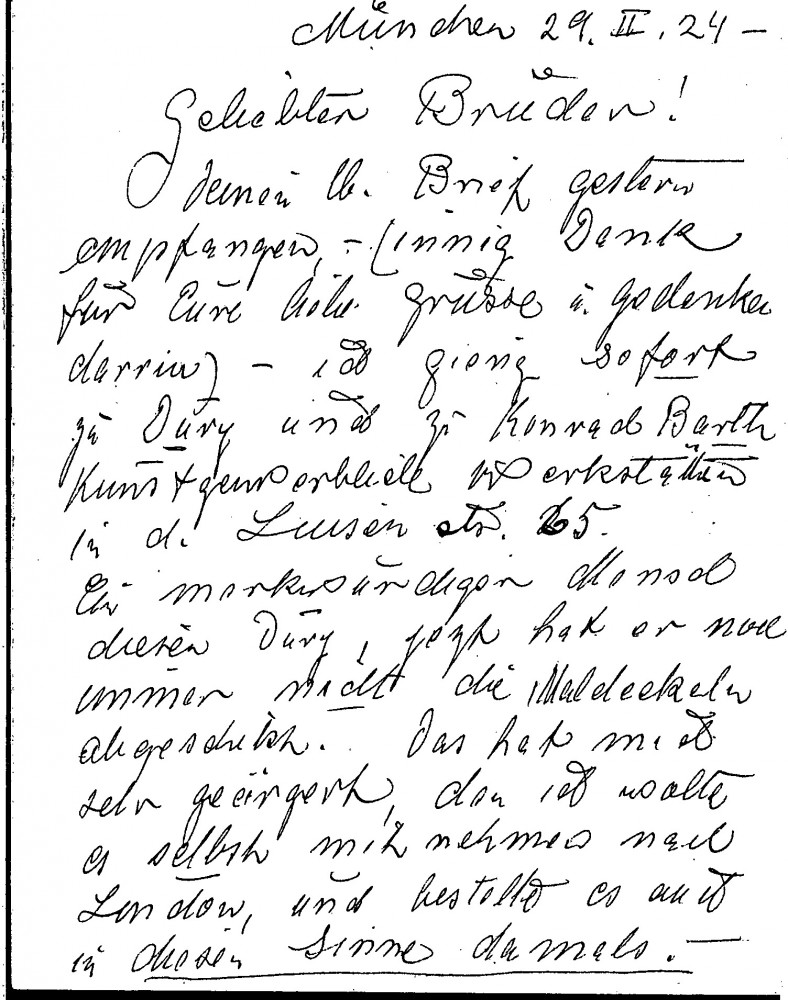 München 29. II. 24 –
Geliebter Bruder!
Deinen lb. Brief gestern
empfangen, – (innig Dank
für Eure liebe Grüsse u. Gedenken
darrin) – ich gieng sofort
zu Dury und zu Konrad Barth
Kunstgewerbliche Werkstätten
in d. Luisen str. 65.
Ein merkwürdiger Mensch
dieser Dury, jezt hat er noch
immer nicht die Maldeckeln
abgeschikt. Das hat mich
sehr geärgert, den ich wollte
es selbst mit nehmen nach
London, und bestellte es auch
in diesen Sinne damals. –